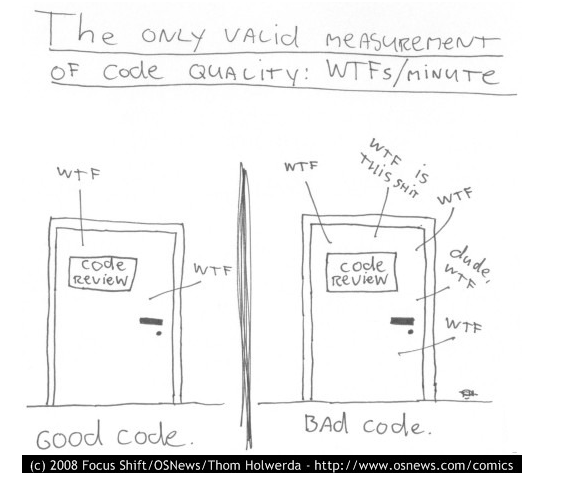 The ONLY VALID MEASUREMENT
OF Code QUALITY: WTFs/MINUTE
WTF
Code
REVIEW
WTF
GOOD CODE.
WTF
WTF is
THIS SHIT
WTF
code
REVIEW
dude,
WTF
WTF
BAd code.
(c) 2008 Focus Shift/OSNews/Thom Holwerda - http://www.osnews.com/comics